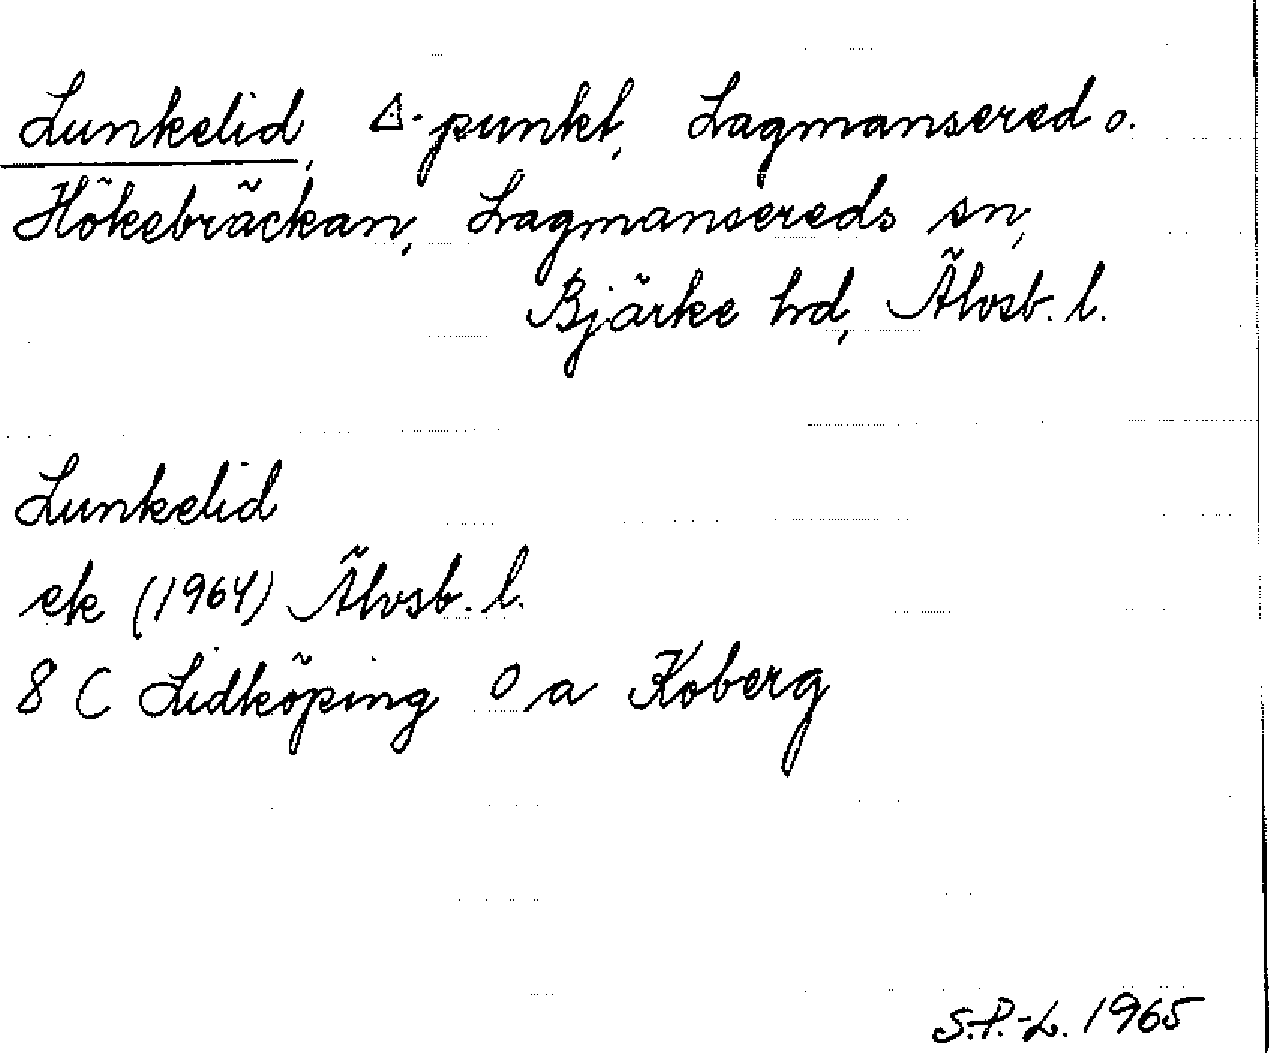 Lunkelid, △-punkt, Lagmansered o.
Hökebräckan, Lagmansereds sn,
Bjärke hd, Älvsb. l.
Lunkelid
ek (1964) Älvsb. l.
8 C Lidköping O a Koberg
S.P.-L. 1965